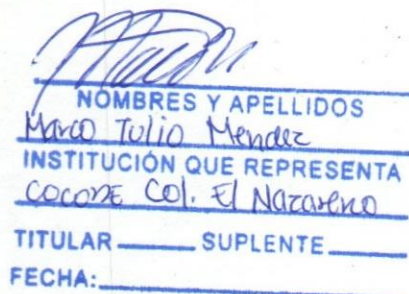 NOMBRES Y APELLIDOS
Marco Tulio Mendez
INSTITUCIÓN QUE REPRESENTA
COCODE Col. El Nazareno
TITULAR______ SUPLENTE______
FECHA:______